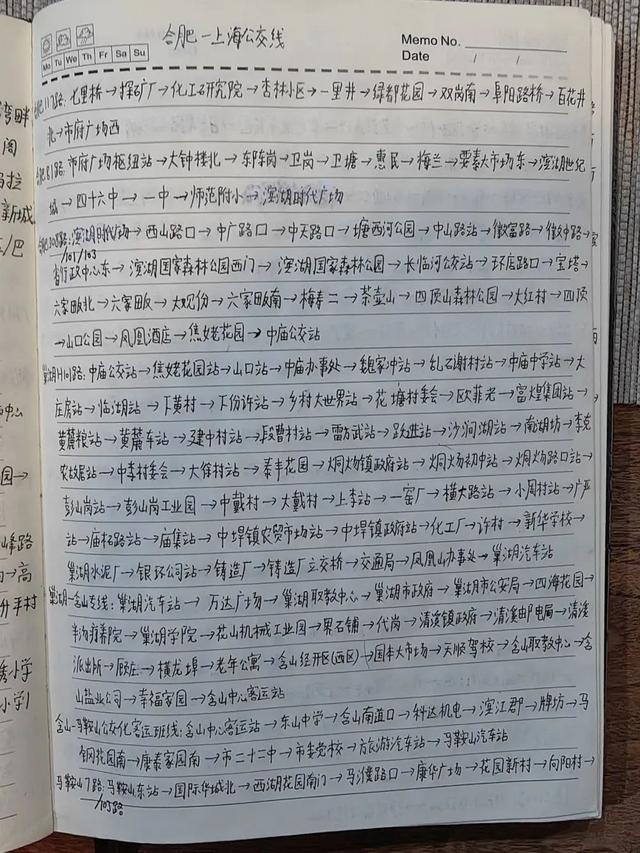 合肥—上海公交线
Memo No.
Mo Tu We Th Fr Sa Su
Date / /
合肥117路: 七里桥→探矿厂→化工研究院→杏林小区→一里井→绿都花园→双岗南→阜阳路桥→百花井
北→市府广场西
合肥81路: 市府广场枢纽站→大钟楼北→东陈岗→卫岗→卫塘→惠民→梅兰→要素大市场东→滨湖世纪
城→四十六中→一中→师范附小→滨湖时代广场
滨湖时代广场→西山路口→中广路口→中天路口→塘西河公园→中山路站→徽富路→徽中路→
/101/103
省行政中心东→滨湖国家森林公园西门→滨湖国家森林公园→长临河公交站→环店路口→宝塔→
六家畈北→六家畈→大观份→六家畈南→梅寿二→茶壶山→四顶山森林公园→大红村→四顶
→山口公园→凤凰酒店→焦姥花园→中庙公交站
巢湖H1路: 中庙公交站→焦姥花园站→山口站→中庙办事处→魏家冲站→乱石谢村站→中庙中学站→大
庄房站→临湖站→下黄村→下份许站→乡村大世界站→花塘村委会→欧菲光→富煌集团站→
黄麓粮站→黄麓车站→建中村站→段曹村站→雷方武站→跃进站→沙涧湖站→南湖坊→李克
农故居站→中李村委会→大徐村站→泰丰花园→烔炀镇政府站→烔炀初中站→烔炀路口站→
彭山岗站→彭山岗工业园→中戴村→大戴村→上李站→一窑厂→横大路站→小周村站→广严
站→庙石路站→庙集站→中垾镇农贸市场站→中垾镇政府站→化工厂→许村→新华学校→
巢湖水泥厂→银环公司站→铸造厂→铸造厂立交桥→交通局→凤凰山办事处→巢湖汽车站
巢湖—含山专线: 巢湖汽车站→万达广场→巢湖职教中心→巢湖市政府→巢湖市公安局→四海花园→
半汤疗养院→巢湖学院→花山机械工业园→界石铺→代岗→清溪镇政府→清溪邮电局→清溪
派出所→顾庄→横龙埠→老年公寓→含山经开区(西区)→国丰大市场→天顺驾校→含山职教中心→含
山盐业公司→幸福家园→含山中心客运站
含山—马鞍山公交化客运班线: 含山中心客运站→东山中学→含山南道口→科达机电→滨江郡→牌坊→马
钢花园南→康泰家园南→市二十二中→市委党校→旅游汽车站→马鞍山汽车站
马鞍山7路: 马鞍山东站→国际华城北→西湖花园南门→马濮路口→康华广场→花园新村→向阳村→
/103路